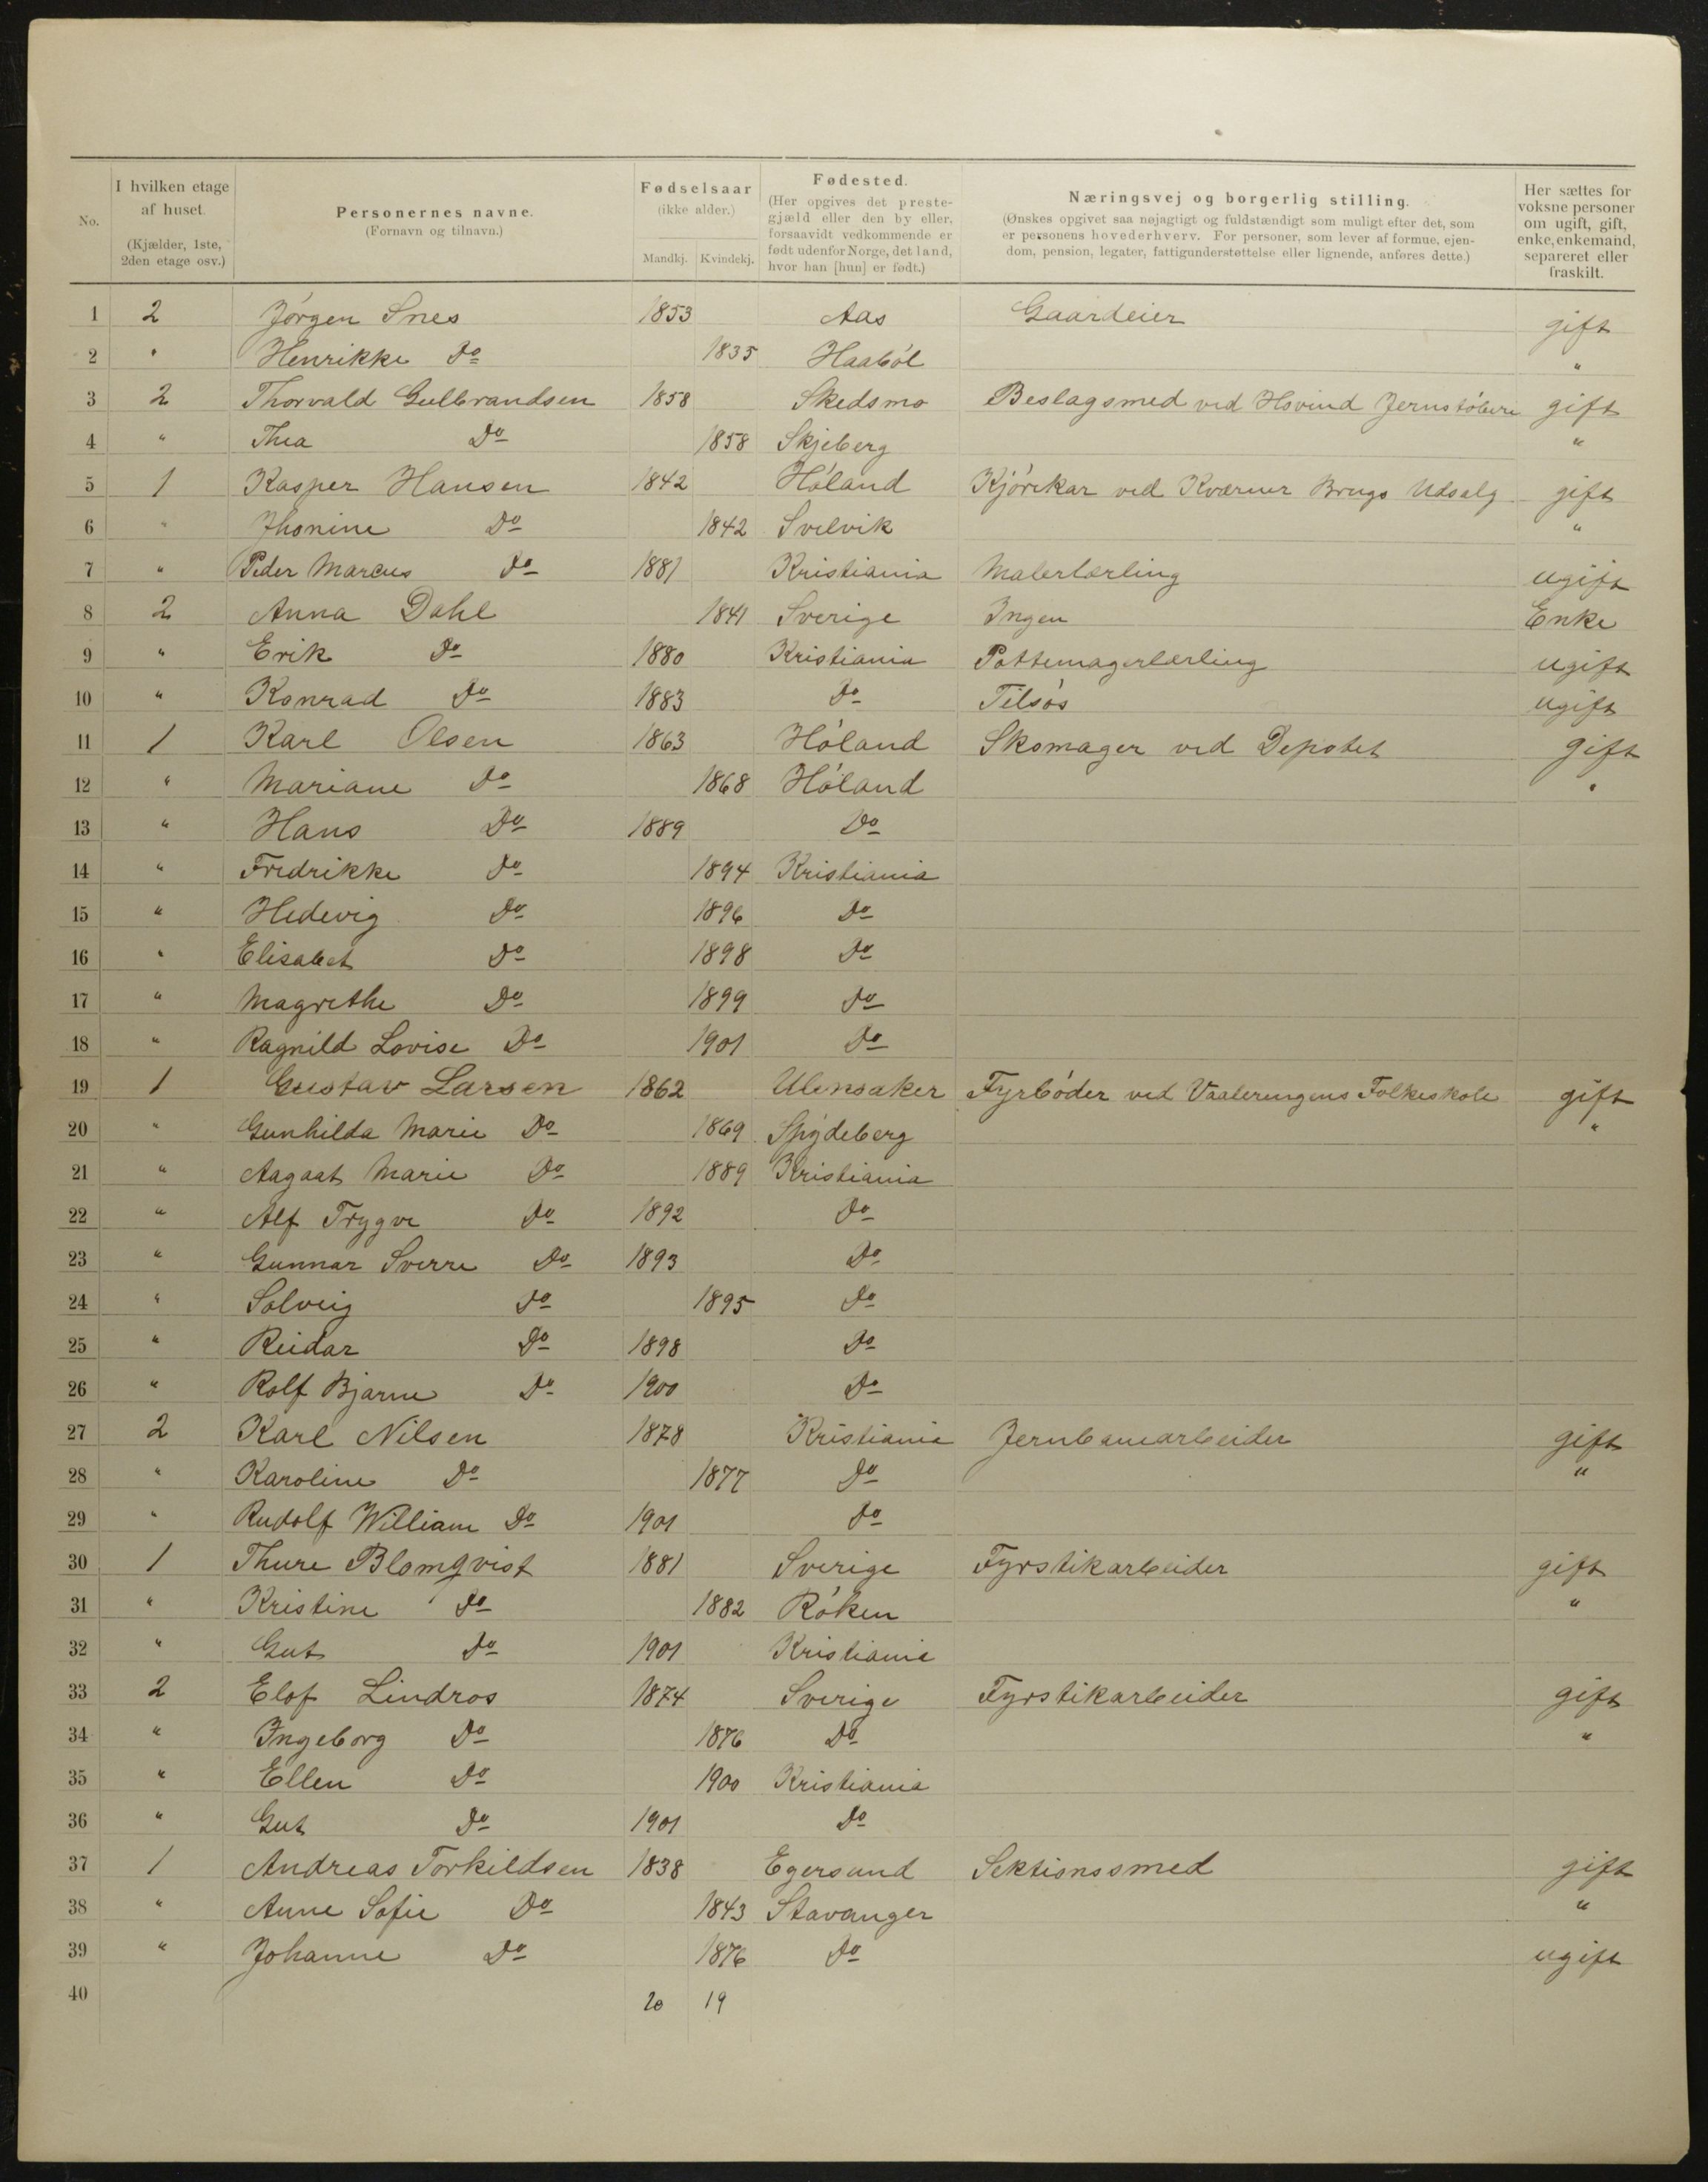 No. I hvilken etage af huset. (Kjælder, 1ste, 2den etage osv.) Personernes navne. (Fornavn og tilnavn.) Fødselsaar (ikke alder.) Mandkj. Kvindekj. Fødested. (Her opgives det prestegjæld eller den by eller, forsaavidt vedkommende er født udenfor Norge, det land, hvor han [hun] er født.) Næringsvej og borgerlig stilling. (Ønskes opgivet saa nøjagtigt og fuldstændigt som muligt efter det, som er personens hovederhverv. For personer, som lever af formue, ejendom, pension, legater, fattigunderstøttelse eller lignende, anføres dette.) Her sættes for voksne personer om ugift, gift, enke, enkemand, separeret eller fraskilt.
1 2 Jörgen Snes 1853 Aas Gaardeier gift
2 " Henrikke Do 1835 Haaböl "
3 2 Thorvald Gulbrandsen 1858 Skedsmo Beslagsmed ved Hovind Jernstöberi gift
4 " Thea Do 1858 Skjeberg "
5 1 Kasper Hansen 1842 Höland Kjörekar ved Kværner Brugs Udsalg gift
6 " Jhonine Do 1842 Svelvik "
7 " Peder Marcus Do 1881 Kristiania Malerlærling ugift
8 2 Anna Dahl 1841 Sverige Ingen Enke
9 " Erik Do 1880 Kristiania Pottemagerlærling ugift
10 " Konrad Do 1883 Do Tilsös ugift
11 1 Karl Olsen 1863 Höland Skomager ved Depotet gift
12 " Mariane Do 1868 Höland "
13 " Hans Do 1889 Do
14 " Fredrikke Do 1894 Kristiania
15 " Hedevig Do 1896 Do
16 " Elisabet Do 1898 Do
17 " Magrethe Do 1899 Do
18 " Ragnild Lovise Do 1901 Do
19 1 Gustav Larsen 1862 Ulensaker Fyrböder ved Vaalerungens Folkeskole gift
20 " Gunhilda Marie Do 1869 Spydeberg "
21 " Aagaat Marie Do 1889 Kristiania
22 " Alf Trygve Do 1892 Do
23 " Gunnar Sverre Do 1893 Do
24 " Solveig Do 1895 Do
25 " Reidar Do 1898 Do
26 " Rolf Bjarne Do 1900 Do
27 2 Karl Nilsen 1878 Kristiania Jernbanearbeider gift
28 " Karoline Do 1877 Do "
29 " Rudolf William Do 1901 Do
30 1 Thure Blomqvist 1881 Sverige Fyrstikarbeider gift
31 " Kristine Do 1882 Röken "
32 " Gut Do 1901 Kristiania
33 2 Elof Lindros 1874 Sverige Fyrstikarbeider gift
34 " Ingeborg Do 1876 Do "
35 " Ellen Do 1900 Kristiania
36 " Gut Do 1901 Do
37 1 Andreas Torkildsen 1838 Egersund Sektionssmed gift
38 " Anne Sofie Do 1843 Stavanger "
39 " Johanne Do 1876 Do ugift
40 20 19